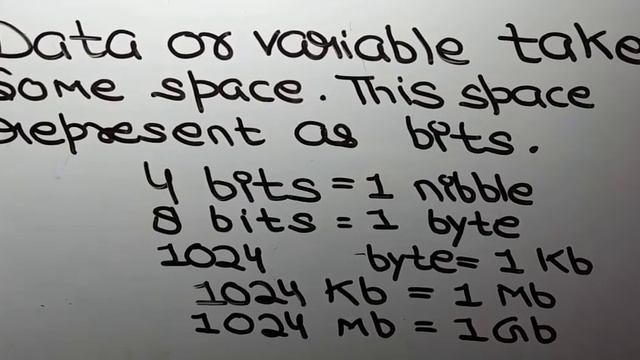 Data or variable take
Some space. This space
represent as bits.
4 bits = 1 nibble
8 bits = 1 byte
1024 byte = 1 Kb
1024 Kb = 1 Mb
1024 Mb = 1 Gb